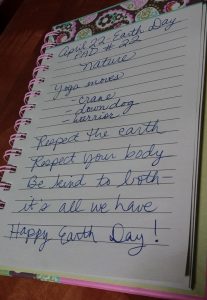 April 22 - Earth Day
PAD # 22
Nature
Yoga moves
- crane
- down dog
- warrior
Respect the earth
Respect your body
Be kind to both -
it's all we have
Happy Earth Day!